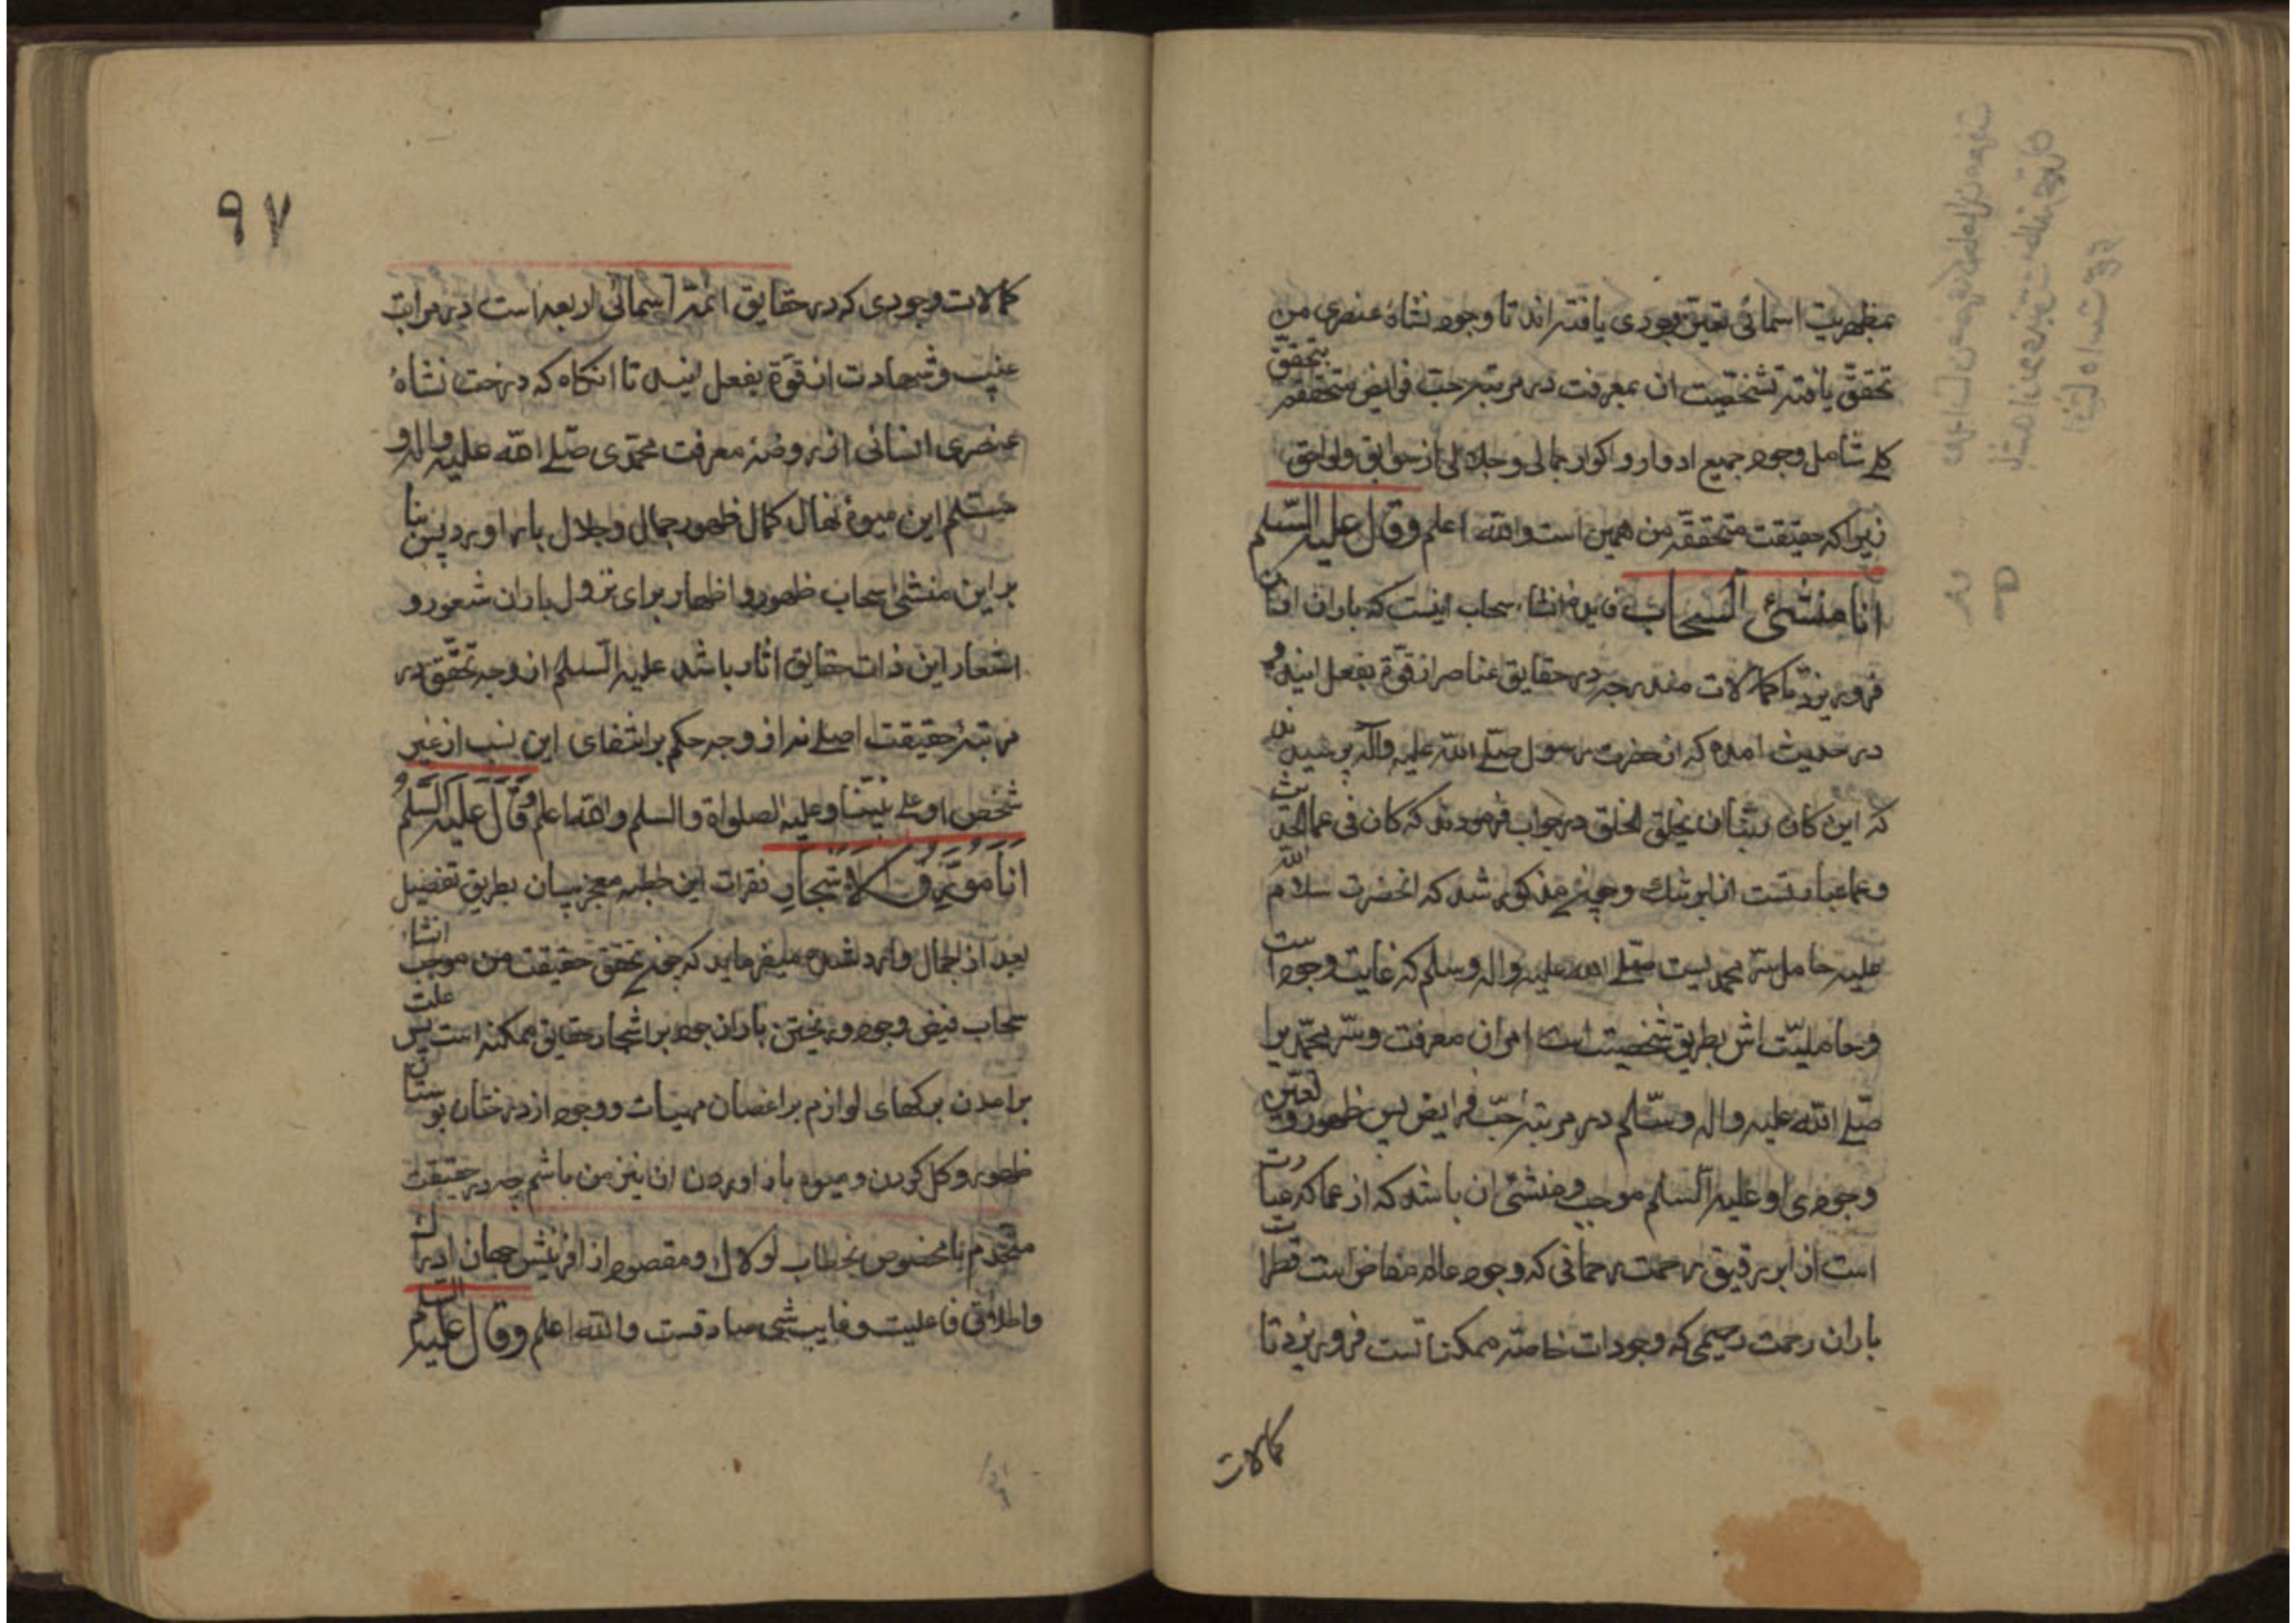 بمظهریت اسمائی تعیّن وجودی یافته‌اند تا وجود نشاهٔ عنصری من
تحقّق یافته تشخّصیت ان بمعرفت در مرتبه حبّ فرایض متحقّقه بتحقّق
کلے شامل وجود جمیع ادوار و اکوار جمالی و جلالی از سوابق و لواحق
زیرا که حقیقت متحققه من همین است والله اعلم وقال علیه السّلم
انا منشئ السّحاب انشاء سحاب اینست که باران ازان
فرو ریزد تا کمالات مندرجه در حقایق عناصر از قوّة بفعل اید و
در حدیث امده که از حضرت رسول صلّے الله علیه واله پرسیدند
که این کان ربّنا ان یخلق الخلق در جواب فرمودند که کان فی عما الحدیث
وعما عبارتست از ابر تنک و چون مذکور شد که انحضرت سلام الله
علیه حامل سرّ محمدیست صلّے الله علیه واله وسلم که غایت وجود است
و حاملیّت اش بطریق شخصیت است امران معرفت وسرّ محمّد برا
صلّے الله علیه واله وسّلم در مرتبه حبّ فرایض پس ظهور و تعیّن
وجودی او علیه السلم موجب و منشئ ان باشد که از عما که عبارت
است از ابر رقیق رحمت رحمانی که وجود عالم مفاض است قطرات
باران رحمت رحیمی که وجودات خاصّه ممکناتست فرو ریزد تا
کمالات
۹۷
کمالات وجودی که در حقایق ائمّه اسمائی اربعه است در مراتب
غیب و شهادت از قوّة بفعل اید تا انکاه که درخت نشاهٔ
عنصری انسانی از روضهٔ معرفت محمّدی صلّے الله علیه واله و
سلم این میوهٔ نهال کمال ظهور جمال و جلال بار اورد پس بنا
براین منشئ سحاب ظهور و اظهار برای نزول باران شعور و
اشعار این ذات حقایق اثار باشد علیه السلم از وجه تحقّق در
مرتبهٔ حقیقت اصلے نه از وجه حکم برانتفای این نسب از غیر
شخص او علے نبیّنا وعلیه الصلواة والسلم والله اعلم وقال علیه السّلم
انا مورق الاشجار فقرات این خطبه معجز بیان بطریق تفضیل
بعد از اجمال وارد شده میفرماید که چون تحقق حقیقت من موجب انشاء
سحاب فیض وجود و ریختن باران جود بر اشجار حقایق ممکنه است پس علت
برامدن برکهای لوازم بر اغصان مهیات و وجود از درختان بوستان
ظهور و کل کردن و میوه بار اوردن ان نیز من باشم چه در حقیقت
متّحدم با مخصوص بخطاب لولاک و مقصود از افرینش جهان
واطلاق فاعلیت و غایب شئ صادقست والله اعلم وقال علیه السلم